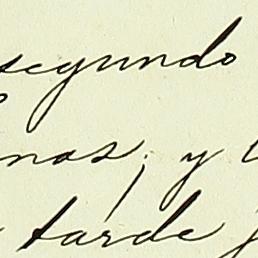 segundo
nas; y
tarde